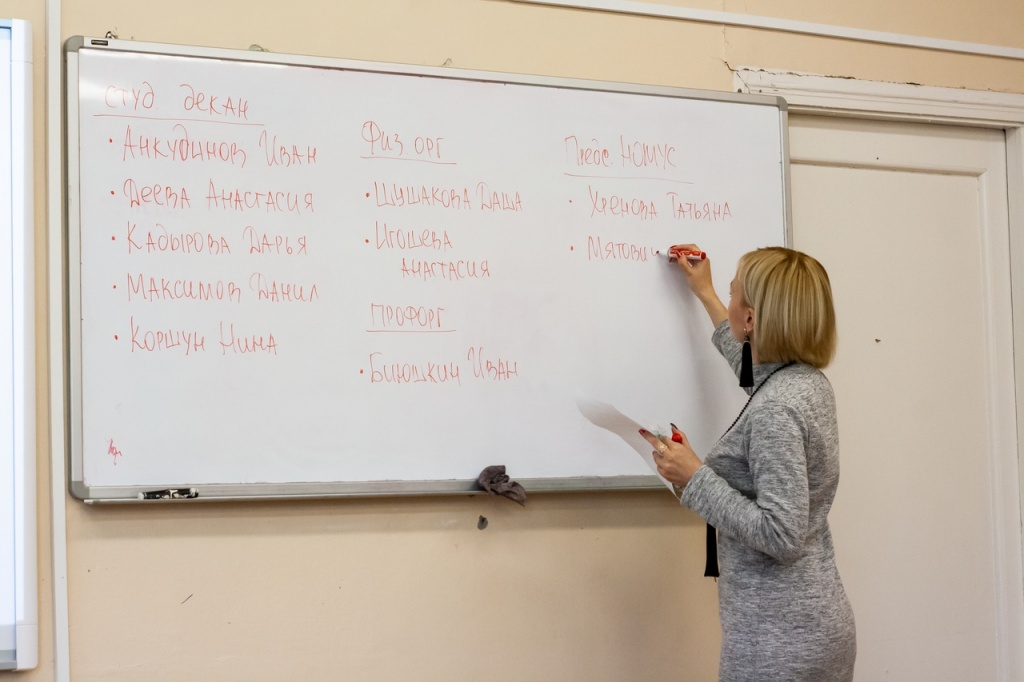 студ декан
• Анкудинов Иван
• Деева Анастасия
• Кадырова Дарья
• Максимов Данил
• Коршун Нина
Физ орг
• Шушакова Даша
• Игошева
Анастасия
ПРОФОРГ
• Биюшкин Иван
Предс. НОМУС
• Хренова Татьяна
• Мятови